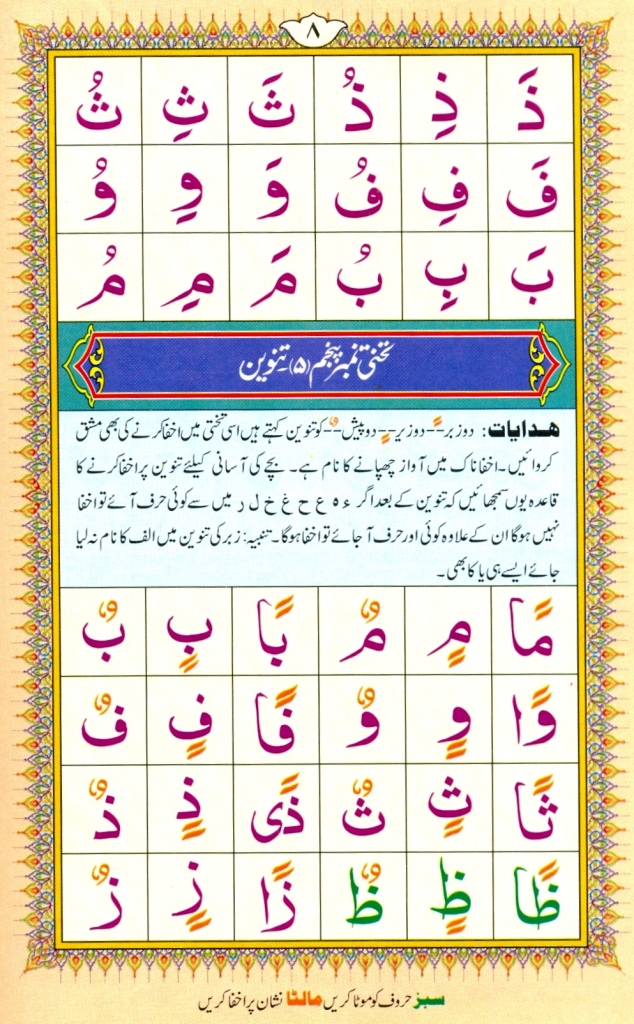 ۸
ذَ ذِ ذُ ثَ ثِ ثُ
فَ فِ فُ وَ وِ وُ
بَ بِ بُ مَ مِ مُ
تختی نمبر پنجم (۵)۔ تنوین
ھدایات: دو زبر ـً -- دو زیر ـٍ -- دو پیش ـٌ -- کو تنوین کہتے ہیں اسی تختی میں اخفا کرنے کی بھی مشق
کروائیں۔ اخفا ناک میں آواز چھپانے کا نام ہے۔ بچے کی آسانی کیلئے تنوین پر اخفا کرنے کا
قاعدہ یوں سمجھائیں کہ تنوین کے بعد اگر ء ہ ع ح غ خ ل ر میں سے کوئی حرف آئے تو اخفا
نہیں ہوگا ان کے علاوہ کوئی اور حرف آ جائے تو اخفا ہوگا۔ تنبیہ: زبر کی تنوین میں الف کا نام نہ لیا
جائے ایسے ہی یا کا بھی۔
مًا مٍ مٌ بًا بٍ بٌ
وًا وٍ وٌ فًا فٍ فٌ
ثًا ثٍ ثٌ ذًی ذٍ ذٌ
ظًا ظٍ ظٌ زًا زٍ زٌ
سبز حروف کو موٹا کریں مالٹا نشان پر اخفا کریں